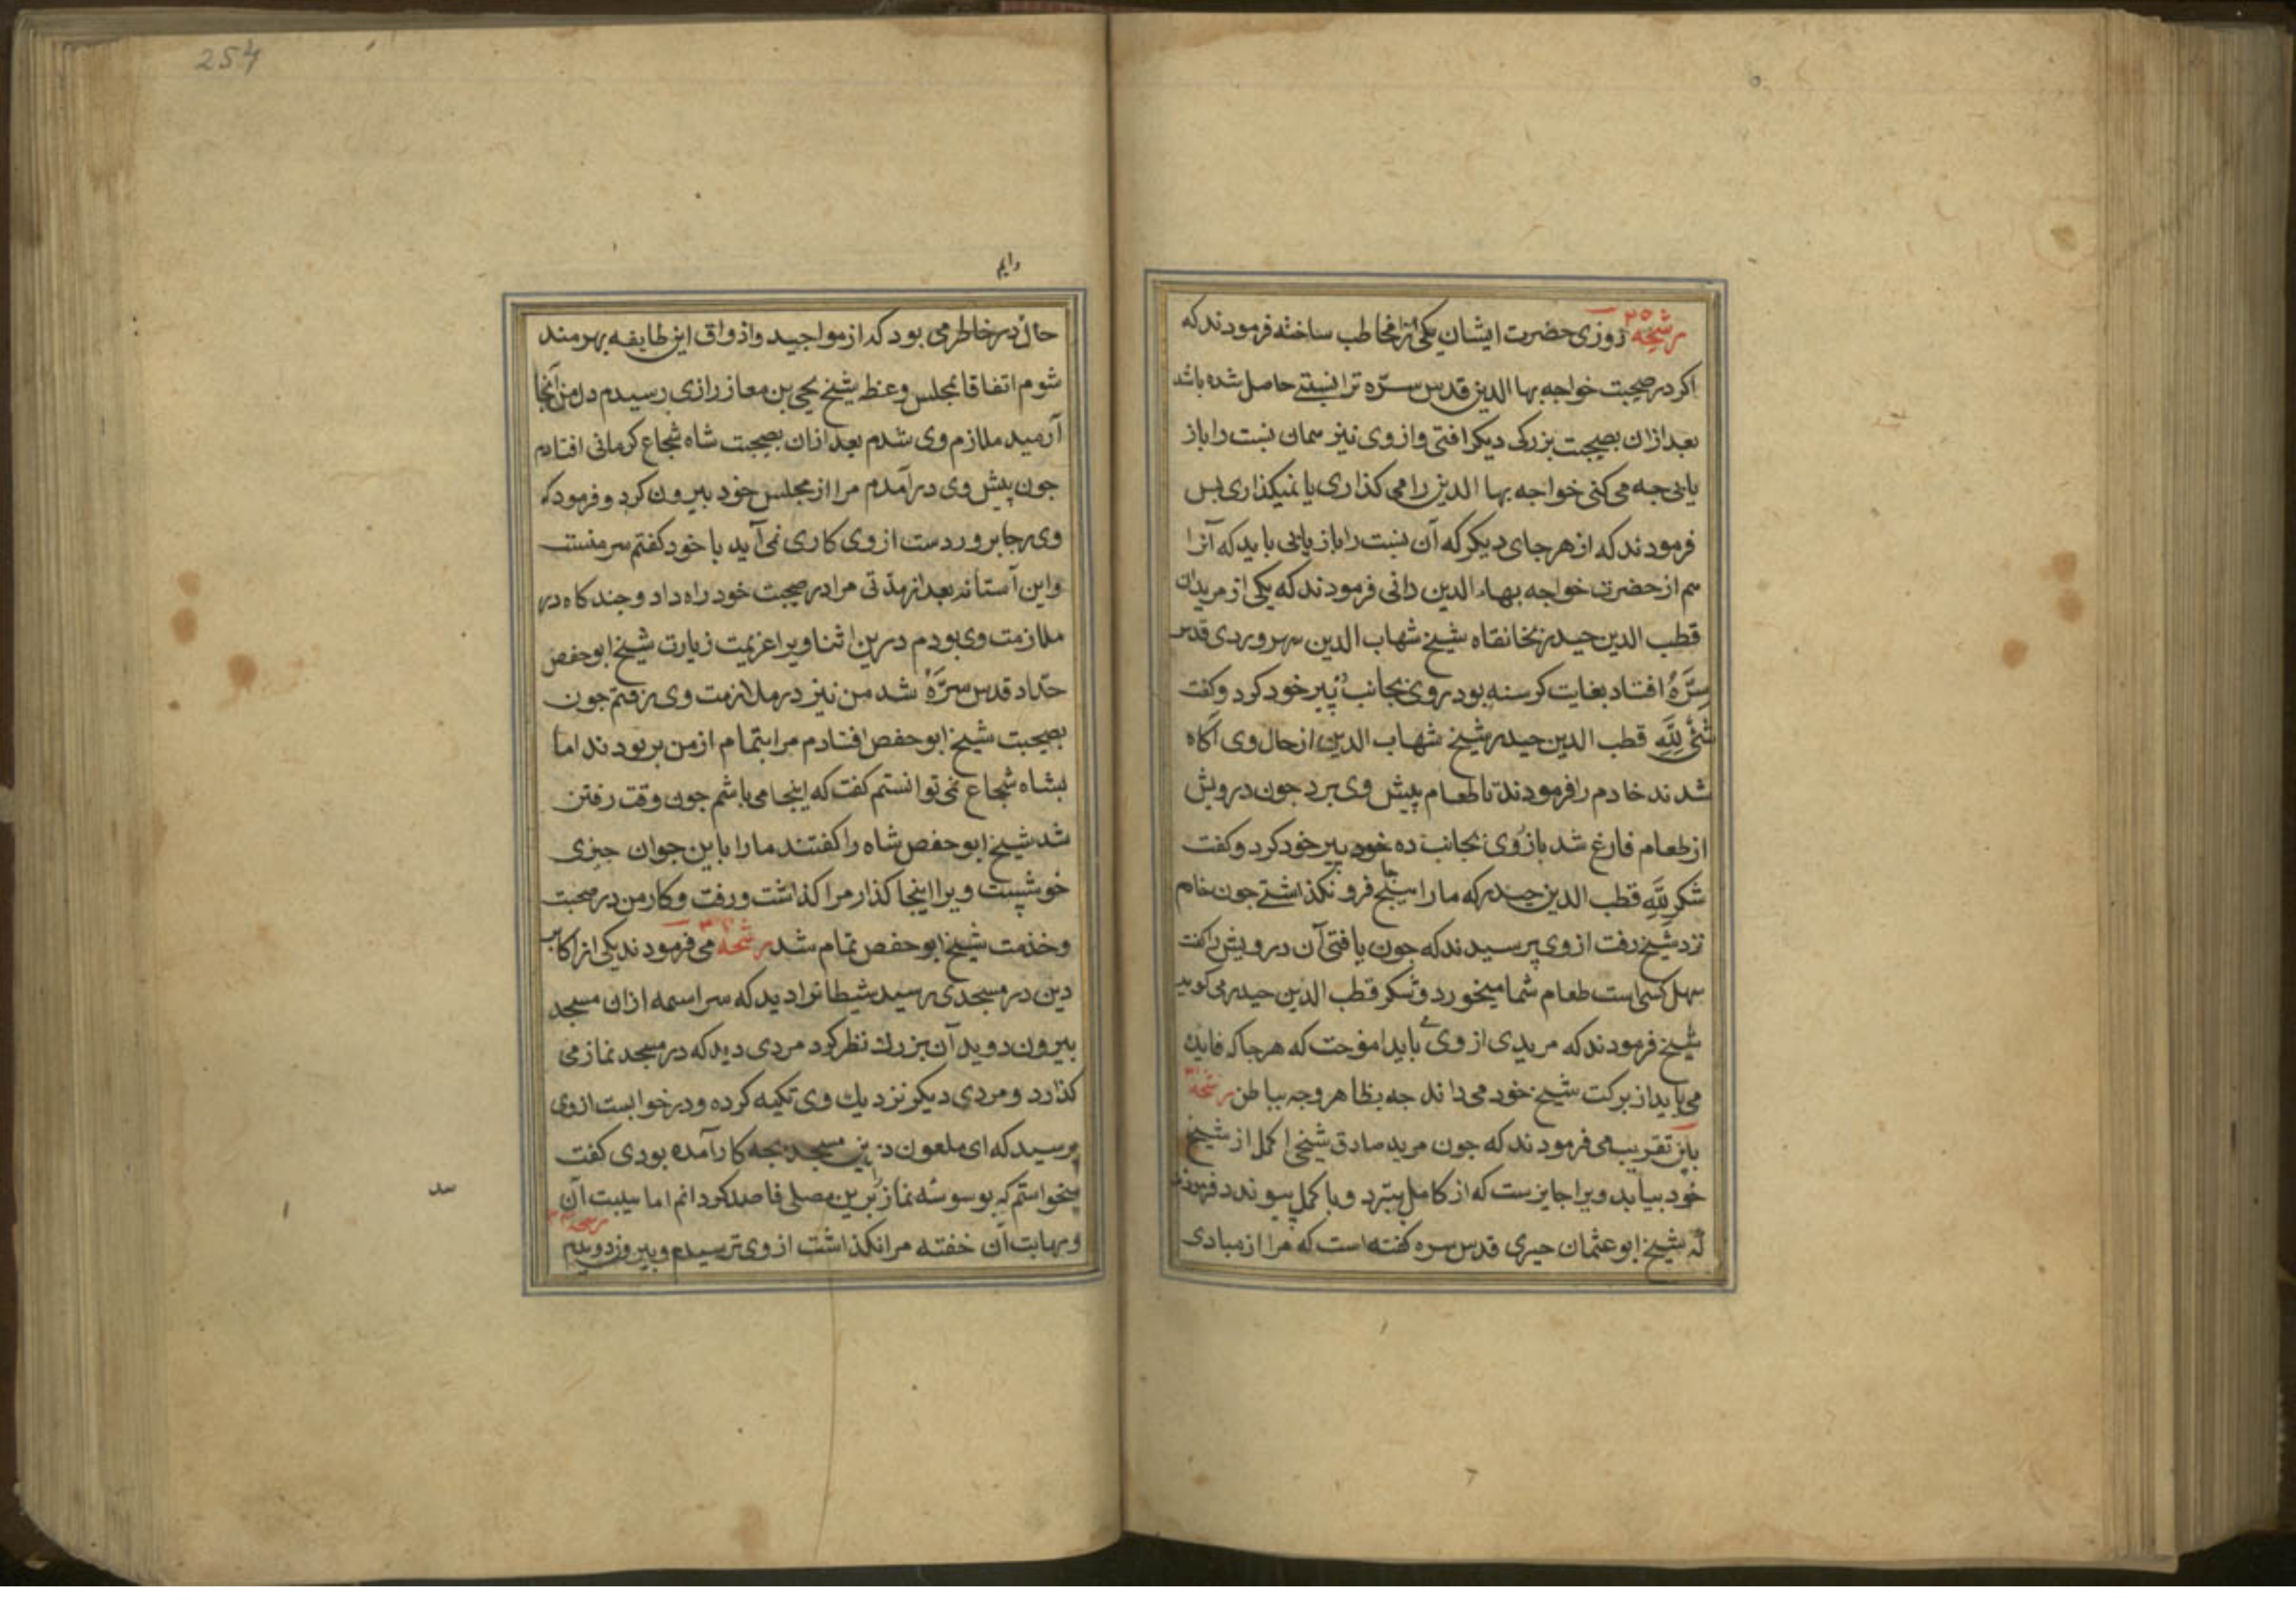 رشحه ۲۵ روزی حضرت ایشان یکی را مخاطب ساخته فرمودند که
اکر در صحبت خواجه بها الدین قدس سرّه ترا نسبتے حاصل شده باشد
بعد ازان بصحبت بزرکی دیکر افتی و از وی نیز همان نسبت را باز
یابی جه می کنی خواجه بها الدین را می کذاری یا نمیکذاری بس
فرمودند که از هر جای دیکر که آن نسبت را باز یابی باید که آنرا
هم از حضرت خواجه بهاء الدین دانی فرمودند که یکی از مریدان
قطب الدین حیدر بخانقاه شیخ شهاب الدین سهروردی قدس
سرَّهُ افتاد بغایت کرسنه بود روی بجانب ده پیر خود کرد و کفت
شئ لِلّهِ قطب الدین حیدر شیخ شهاب الدین از حال وی آکاه
شدند خادم را فرمودند تا طعام پیش وی برد جون درویش
از طعام فارغ شد باز روی بجانب ده خود پیر خود کرد و کفت
شکر لِلّهِ قطب الدین حیدر که ما را هیج جا فرو نکذاشتے جون خادم
نزد شیخ رفت از وی پرسیدند که جون یافتی آن درویش را کفت
سهل کسی است طعام شما میخورد و شکر قطب الدین حیدر می کوید
شیخ فرمودند که مریدی از وی می باید امٯوخت که هر جا که فایده
می یابد از برکت شیخ خود می داند جه بظاهر و جه بباطن رشحه
باین تقریب می فرمودند که جون مرید صادق شیخی اکمل از شیخ
خود بیابد ویرا جایزست که از کامل ببرد و با کمل پیوندد فرمودند
که شیخ ابو عثمان حیری قدس سره کفته است که مرا از مبادی
دایم
حال در خاطر می بود که از مواجید و اذواق این طایفه بهرمند
شوم اتفاقا بمجلس وعظ شیخ یحیی بن معاز رازی رسیدم دل من آنجا
آرمید ملازم وی شدم بعد ازان بصحبت شاه شجاع کرمانی افتادم
جون پیش وی درآمدم مرا از مجلس خود بیرون کرد و فرمود که
وی رجا پروردست از وی کاری نمی آید با خود کفتم سر منست
و این آستانه بعد از مدّتی مرا در صحبت خود راه داد و جند کاه در
ملازمت وی بودم درین اثنا ویرا عزیمت زیارت شیخ ابو حفص
حدّاد قدس سرَّهُ شد من نیز در ملازمت وی رفتم جون
بصحبت شیخ ابو حفص افتادم مرا بتمام از من بربودند اما
بشاه شجاع نمی توانستم کفت که اینجا می باشم جون وقت رفتن
شد شیخ ابو حفص شاه را کفتند ما را با این جوان جیزی
خوشیست ویرا اینجا کذار مرا کذاشت و رفت و کار من در صحبت
و خذمت شیخ ابو حفص تمام شد رشحه می فرمودند یکی از اکابر
دین در مسجدی رسید شیطانرا دید که سراسمه ازان مسجد
بیرون دوید آن بزرك نظر کرد مردی دید که در مسجد نماز می
کذارد و مردی دیکر نزدیك وی تکیه کرده و در خوابست از وی
پرسید که ای ملعون درین مسجد بجه کار آمده بودی کفت
میخواستم که بوسوسه نماز برین مصلی فاسد کردانم اما هیبت آن
و مهابت آن خفته مرا نکذاشت از وی ترسیدم و بیرون دویدم
254